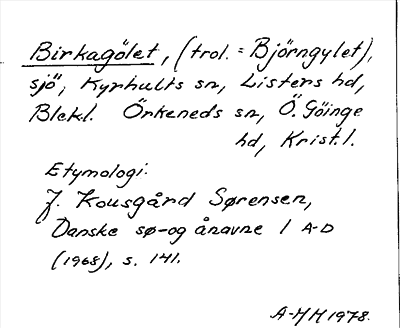 Birkagölet, (trol. = Björngylet),
sjö, Kyrhults sn, Listers hd,
Blekl. Örkeneds sn, Ö. Göinge
hd, Krist.l.
Etymologi:
J. Kousgård Sørensen,
Danske sø- og ånavne 1 A-D
(1968), s. 141.
A-HH 1978.